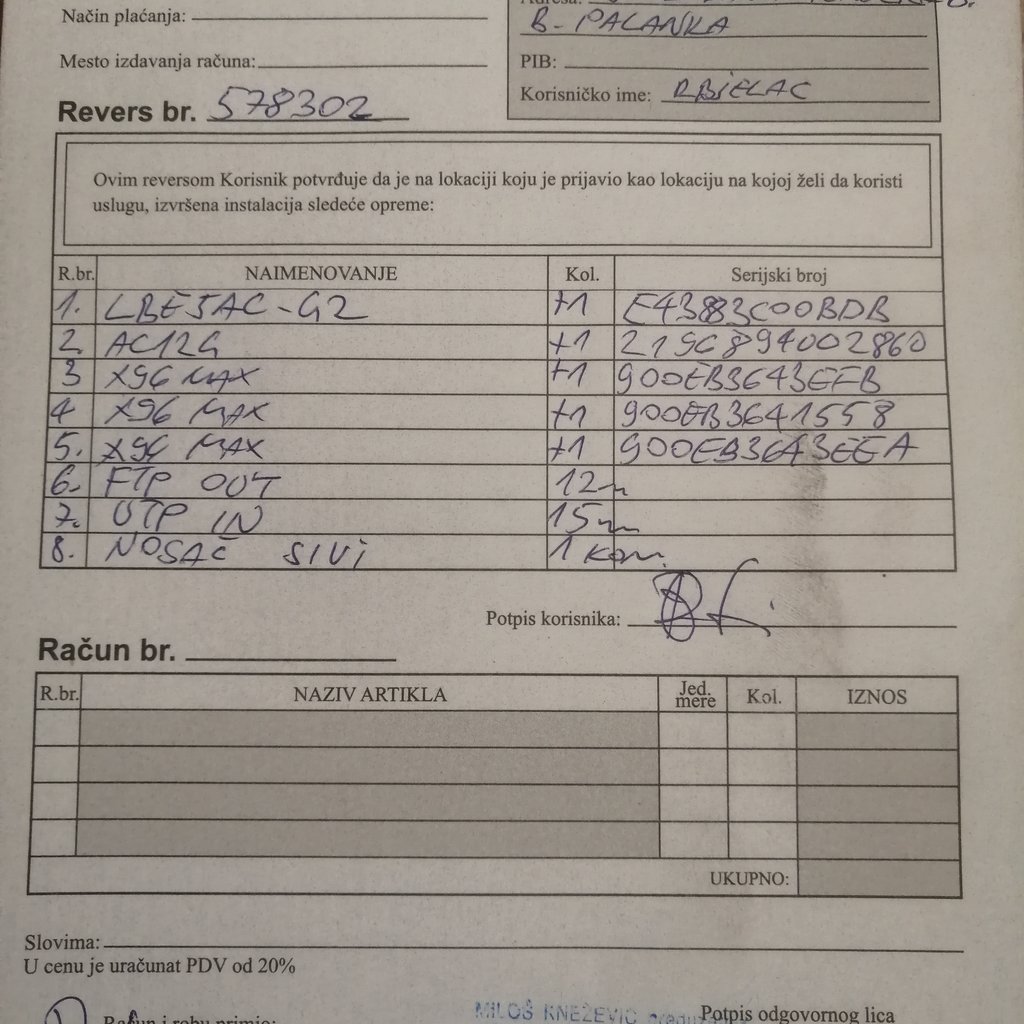 Način plaćanja:
Adresa:
B-PALANKA
Mesto izdavanja računa:
PIB:
Korisničko ime: RBJELAC
Revers br. 578302
Ovim reversom Korisnik potvrđuje da je na lokaciji koju je prijavio kao lokaciju na kojoj želi da koristi
uslugu, izvršena instalacija sledeće opreme:
R.br. NAIMENOVANJE Kol. Serijski broj
1. LBE5AC-G2 +1 E43883C00BDB
2. AC12G +1 2196894002860
3 X96 MAX +1 900EB3643EFB
4 X96 MAX +1 900EB3641558
5. X96 MAX +1 900EB3643EEA
6. FTP OUT 12m
7. UTP IN 15m
8. NOSAČ SIVI 1 kom.
Potpis korisnika:
Račun br.
R.br. NAZIV ARTIKLA Jed. mere Kol. IZNOS
UKUPNO:
Slovima:
U cenu je uračunat PDV od 20%
MILOŠ KNEŽEVIĆ Potpis odgovornog lica
Račun i robu primio: